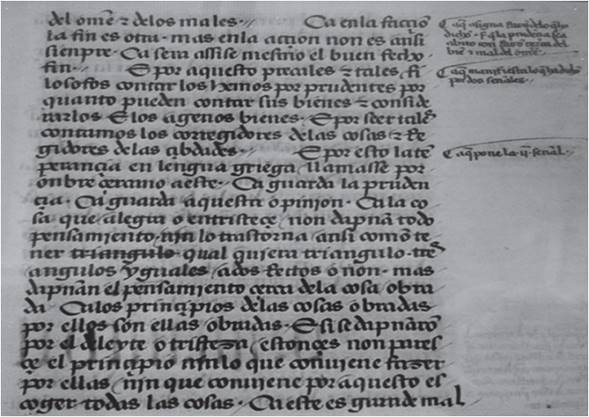 del om̃e ⁊ delos males. Ca en la facçiō
la fin es otra. mas en la acçion non es ansi
sienpre. Ca sera assi se mesmo el buen fecho
fin. E por aquesto pericles ⁊ tales fi
losofos contar los hemos por prudentes por
quanto pueden contar sus bienes ⁊ conside
rarlos. E los agenos bienes. E por seer tales
contamos los corregidores delas cosas ⁊ Re
gidores delas çibdades. E por esto la tē
perançia en lengua griega llamasse por
onbre aeste. Ca guarda la pruden
çia. Ca guarda aquesta opinion. Ca la co
sa que alegra o entristeçe non dapnā todo
pensamiento nin lo trastorna ansi como te
ner triangulo qual quiera triangulo. tres
angulos yguales ados Rectos o non. mas
dapnān el pensamiento çerca dela cosa obra
da. Ca los prinçipios delas cosas obradas
por ellos son ellas obradas. E si se dapnarō
por el deleyte o tristeza estonçes non pares
çe el prinçipio nin lo que conuiene fazer
por ellas nin que conuiene por aquesto es
coger todas las cosas. Ca este es grande mal
¶ aq̄ asigna
¶ aq̄ manifiesta lo q̄ ha dicho
por dos señales.
¶ aq̄ pone la .ij. señal.